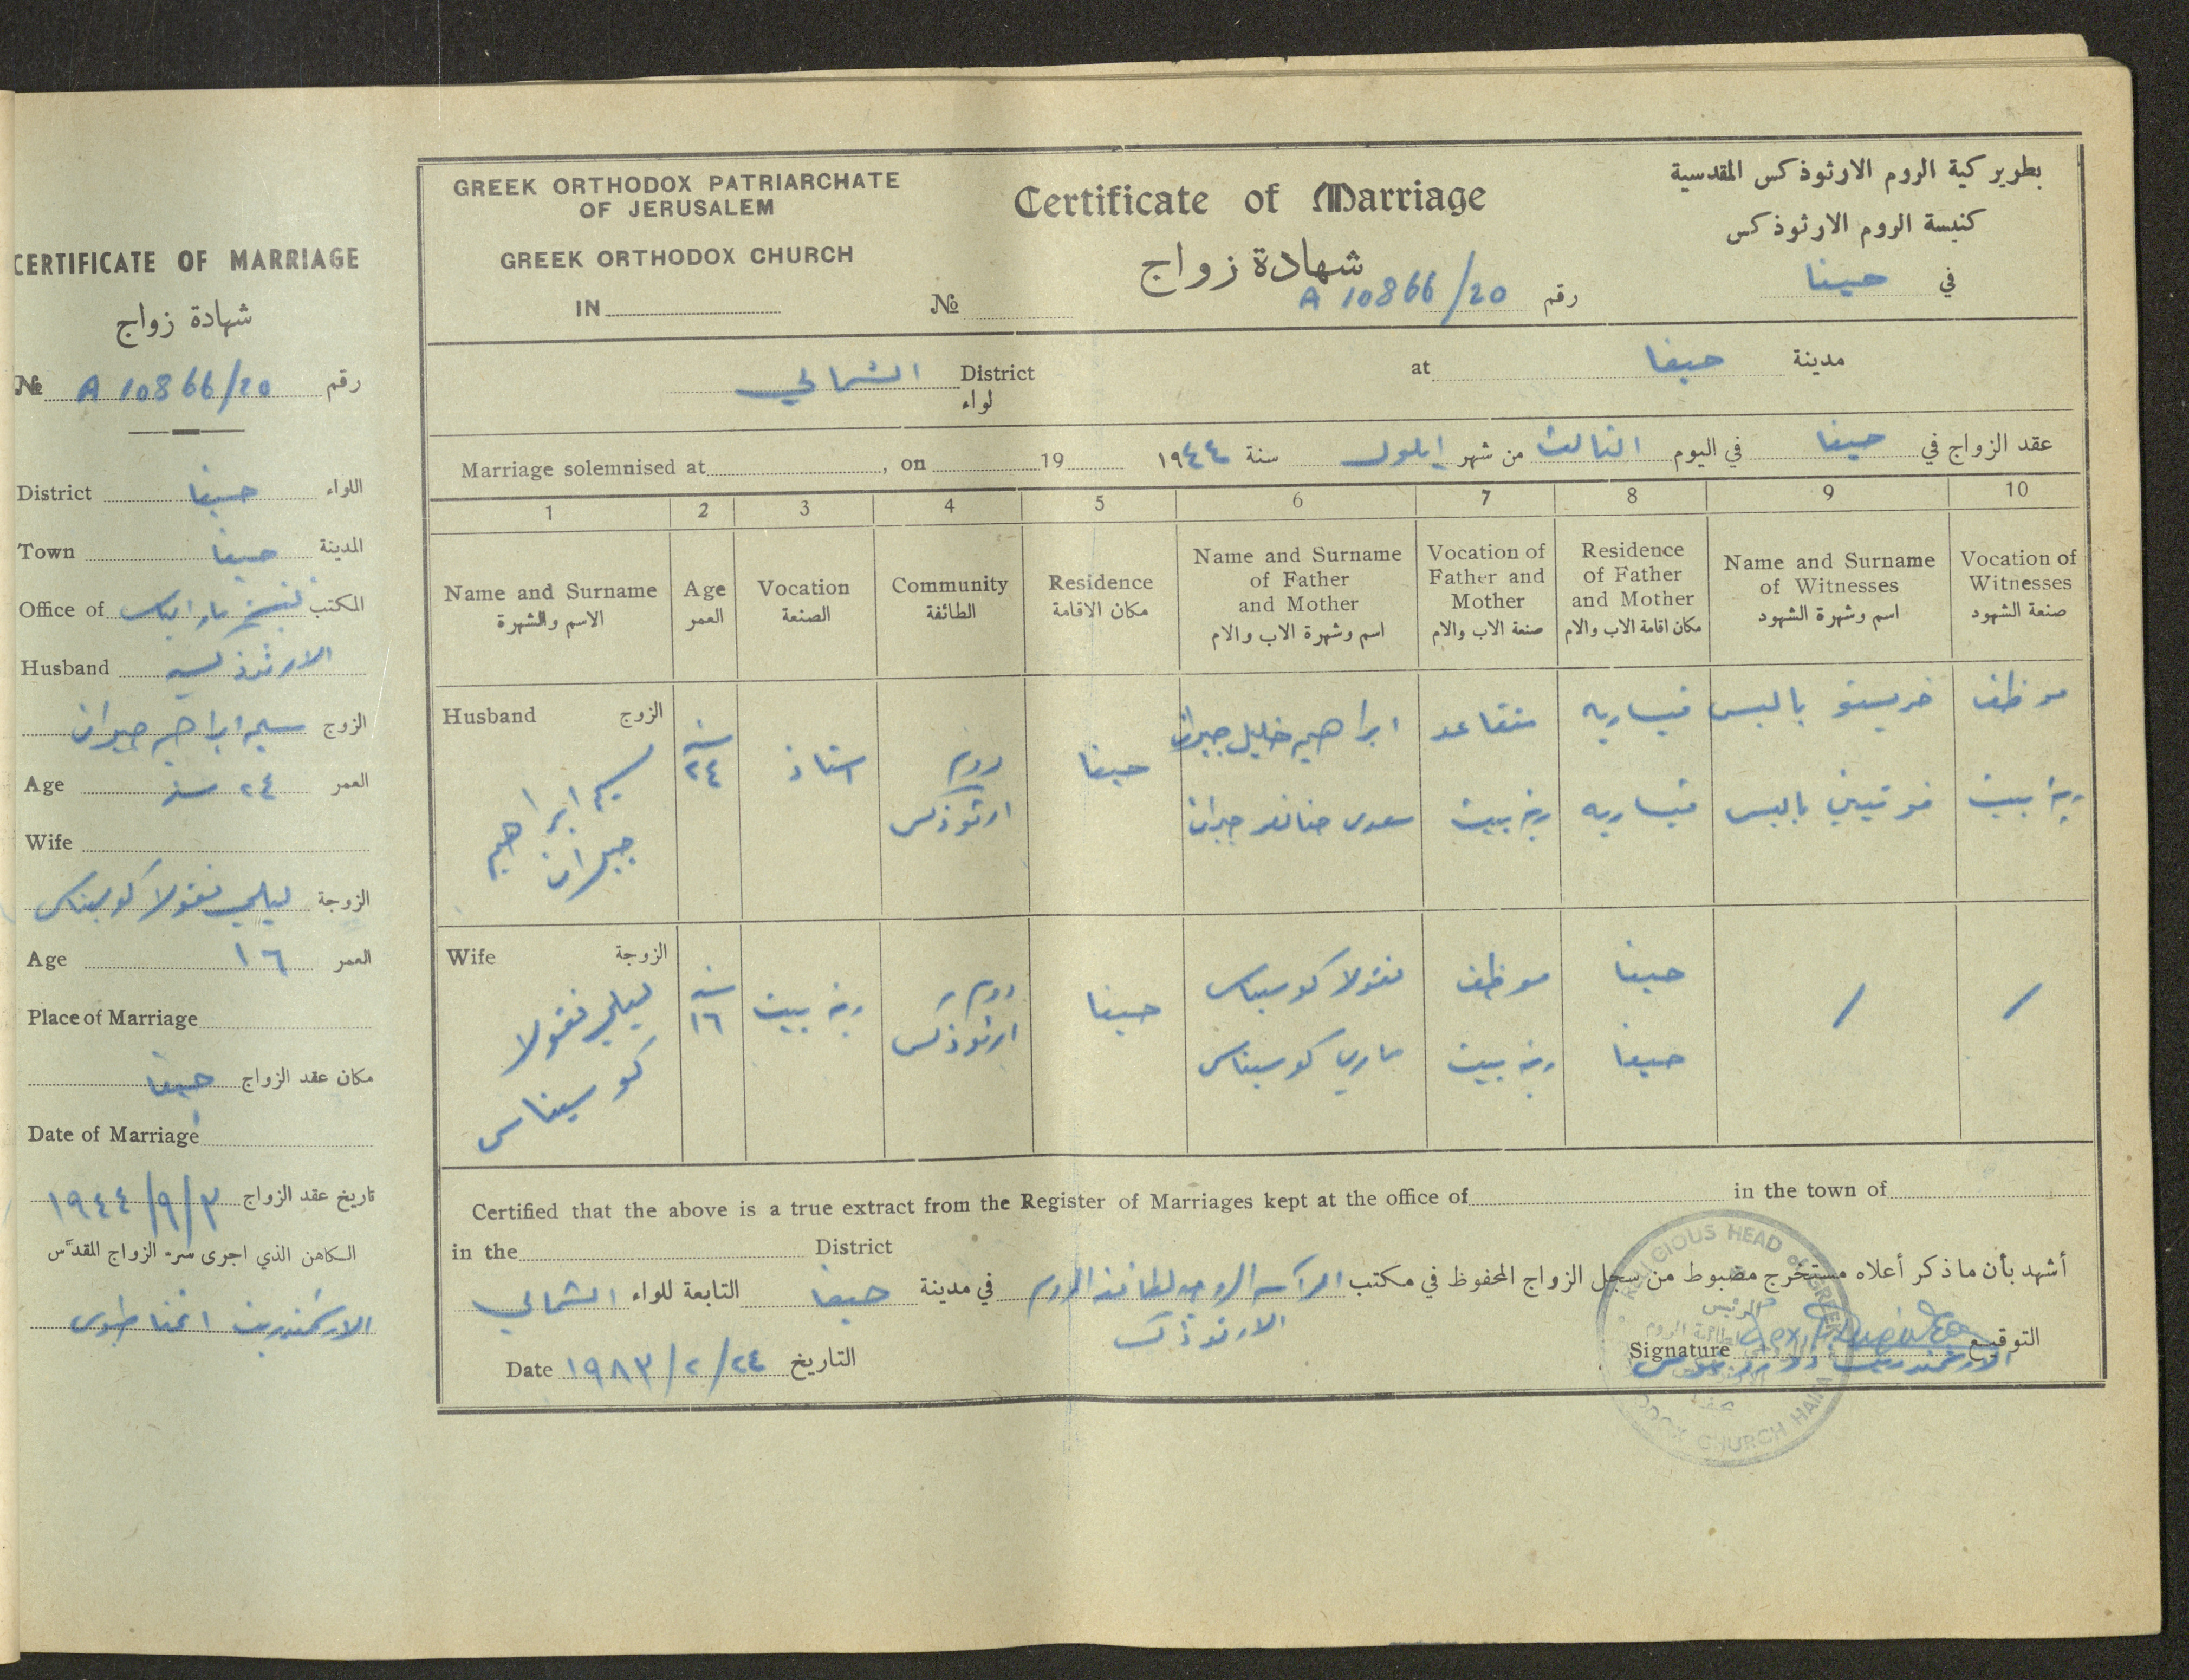 CERTIFICATE OF MARRIAGE
شهادة زواج
№ A 10866/20 رقم
District حيفا اللواء
Town حيفا المدينة
Office of مار الياس المكتب
Husband الارثوذكسية
الزوج سليم ابراهيم جبران
Age ٢٤ سنة العمر
Wife
الزوجة ليلي نقولا كوسيناس
Age ١٦ العمر
Place of Marriage
مكان عقد الزواج حيفا
Date of Marriage
تاريخ عقد الزواج ١٩٤٤/٩/٣
الكاهن الذي اجرى سر الزواج المقدس
الارشمندريت اغناطيوس
GREEK ORTHODOX PATRIARCHATE
OF JERUSALEM
GREEK ORTHODOX CHURCH
IN
Certificate of Marriage
شهادة زواج
№ A 10866/20 رقم
بطريركية الروم الارثوذكس المقدسية
كنيسة الروم الارثوذكس
في حيفا
District الشمالي
لواء
at حيفا مدينة
Marriage solemnised at , on 19
عقد الزواج في حيفا في اليوم الثالث من شهر ايلول سنة ١٩٤٤
1 2 3 4 5 6 7 8 9 10
Name and Surname
الاسم والشهرة
Age
العمر
Vocation
الصنعة
Community
الطائفة
Residence
مكان الاقامة
Name and Surname
of Father
and Mother
اسم وشهرة الاب والام
Vocation of
Father and
Mother
صنعة الاب والام
Residence
of Father
and Mother
مكان اقامة الاب والام
Name and Surname
of Witnesses
اسم وشهرة الشهود
Vocation of
Witnesses
صنعة الشهود
Husband الزوج
سليم ابراهيم
جبران
سنة
٢٤
استاذ
روم
ارثوذكس
حيفا
ابراهيم خليل جبران
سعدى حنا نصر جبران
متقاعد
ربة بيت
قيساريه
قيساريه
خريستو باليس
فوتيني باليس
موظف
ربة بيت
Wife الزوجة
ليلي نقولا
كوسيناس
سنة
١٦
ربة بيت
روم
ارثوذكس
حيفا
نقولا كوسيناس
ماري كوسيناس
موظف
ربة بيت
حيفا
حيفا
/
/
Certified that the above is a true extract from the Register of Marriages kept at the office of in the town of
in the District
أشهد بأن ما ذكر أعلاه مستخرج مضبوط من سجل الزواج المحفوظ في مكتب الرآسه الروحيه لطائفة الروم في مدينة حيفا التابعة للواء الشمالي
الارثوذكس
Date ١٩٨٣/٢/٢٤ التاريخ
Signature التوقيع
الارشمندريت
RELIGIOUS HEAD of GREEK
ORTHODOX CHURCH HAIFA
الرئيس
لطائفة الروم